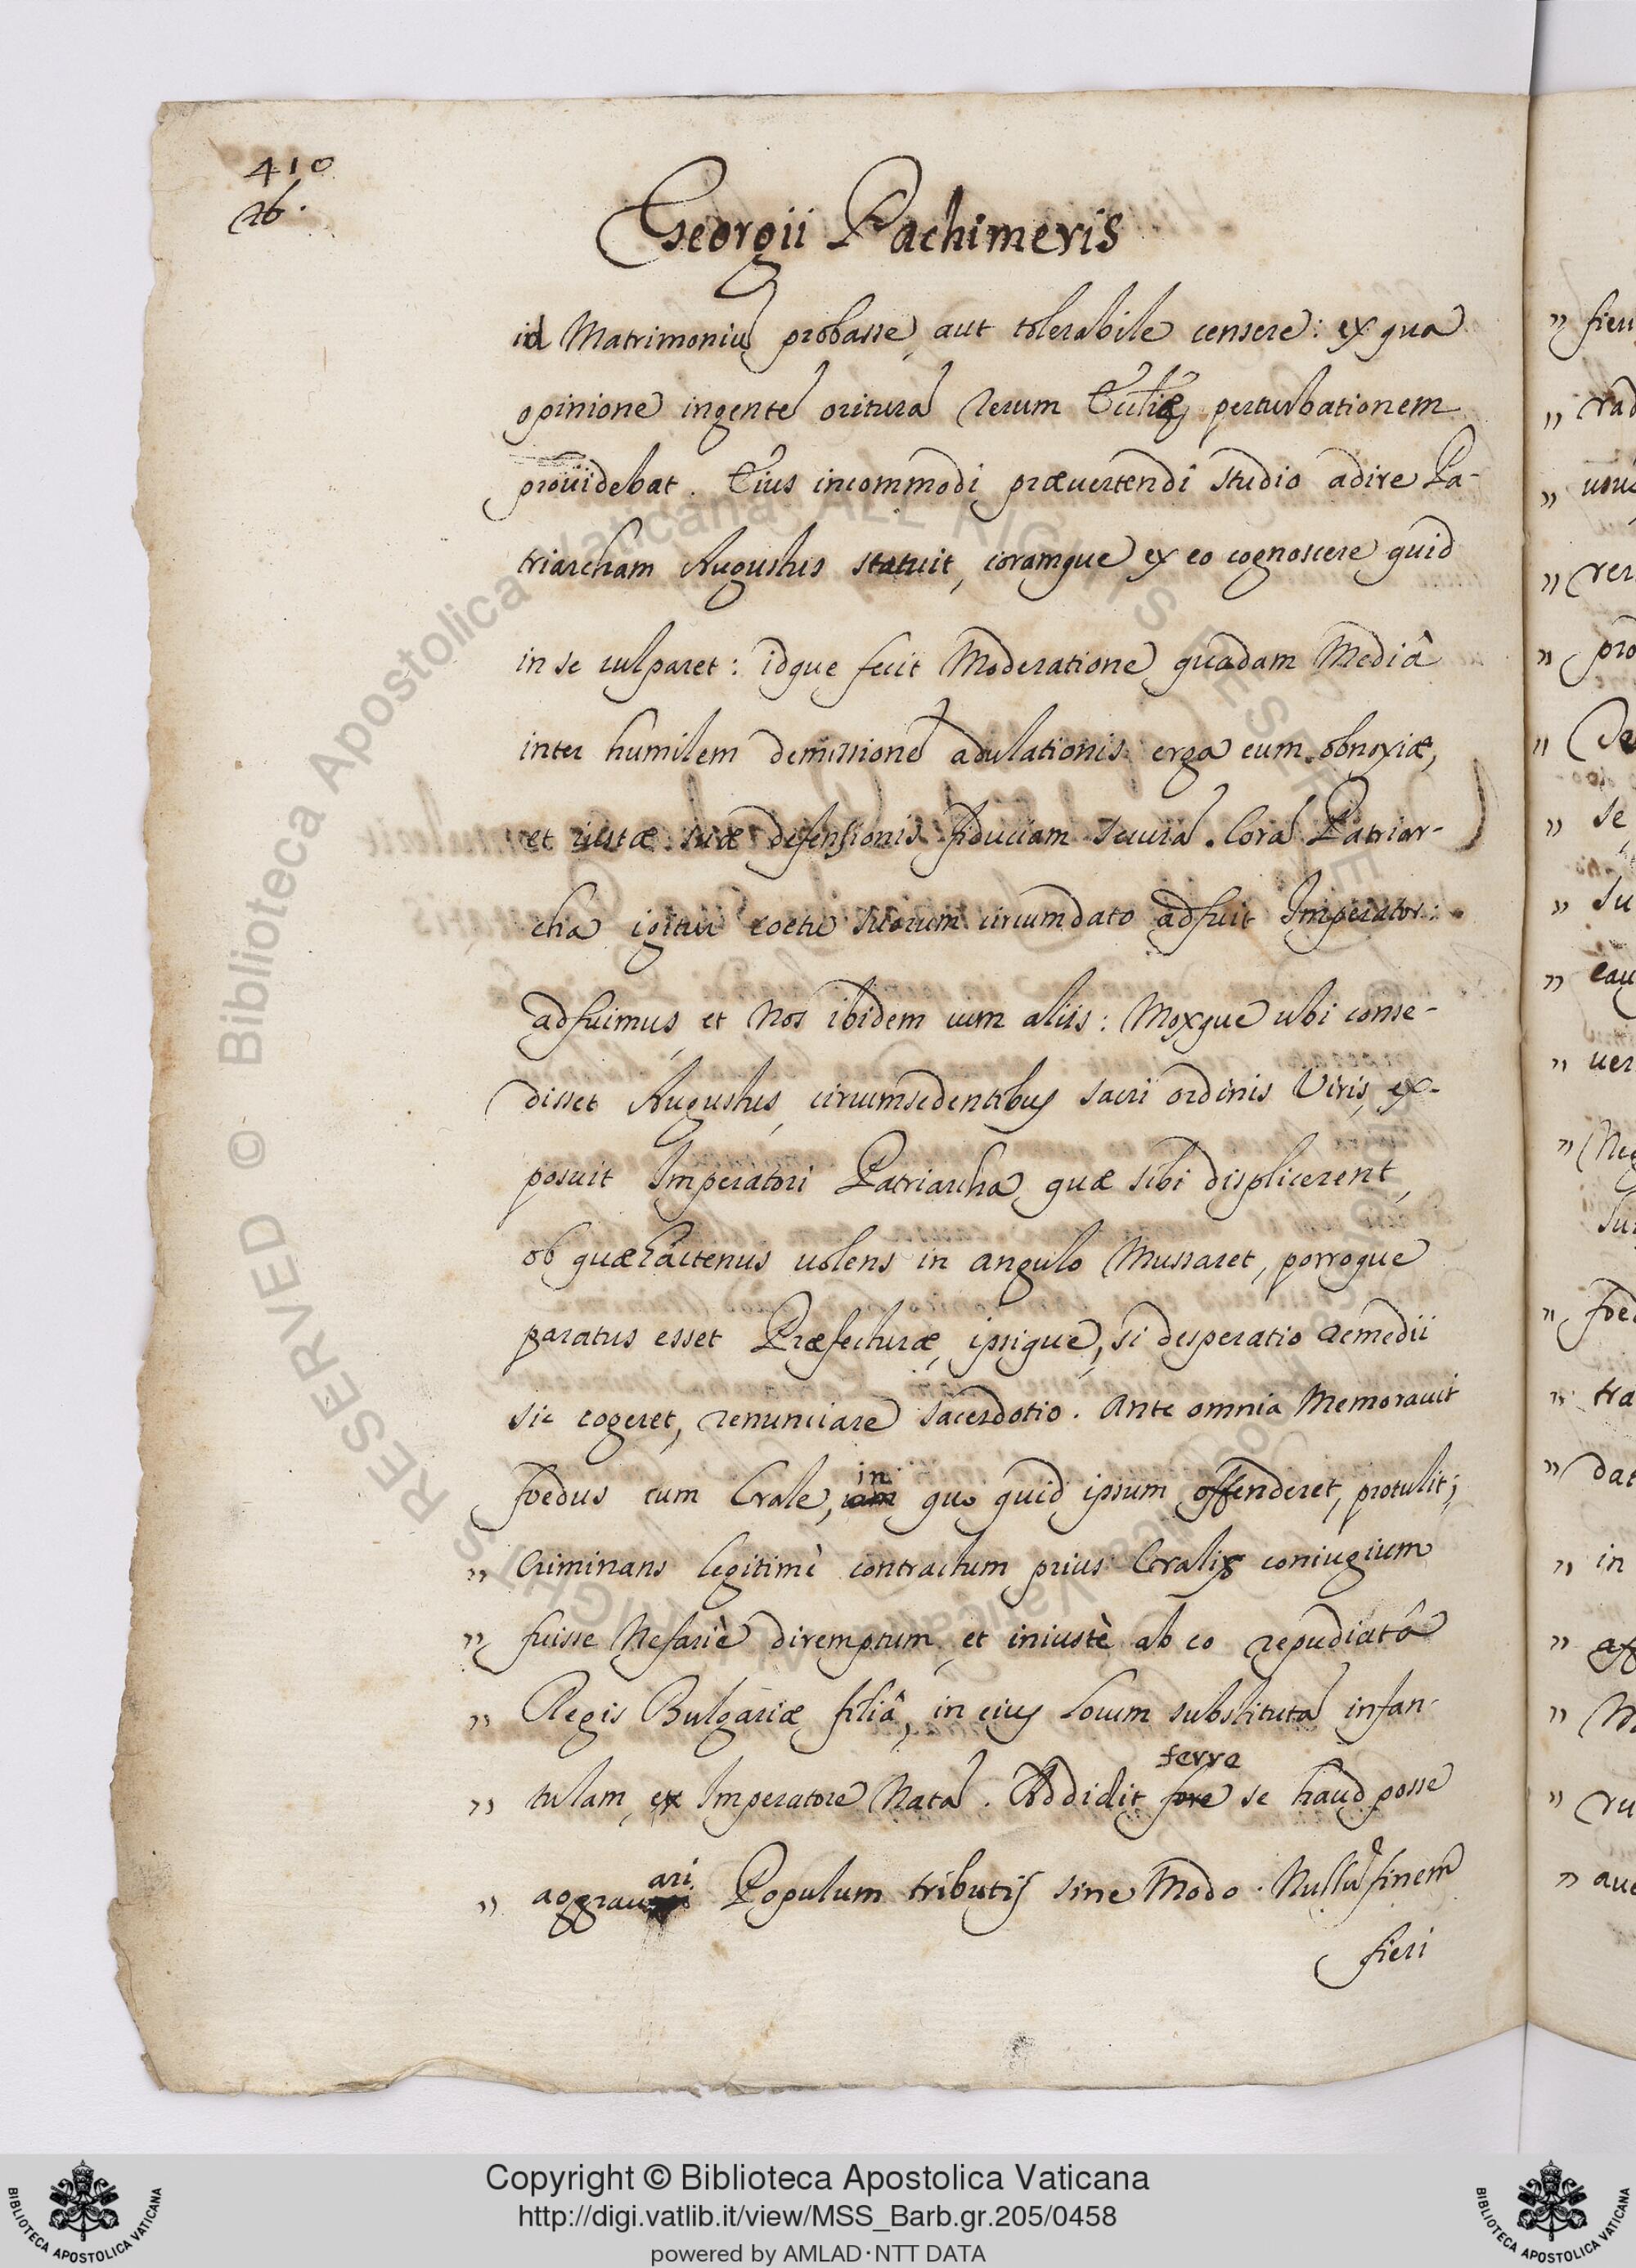 410
26.
Georgii Pachimeris
id Matrimoniũ probasse, aut tolerabile censere: ex qua
opinione ingentẽ oriturã rerum Eccliæ perturbationem
prouidebat. Eius incommodi præuertendi studio adire Pa-
triarcham Augustus statuit, coramque ex eo cognoscere quid
in se culparet: idque fecit Moderatione quadam Mediâ
inter humilem demissionẽ adulationis erga eum obnoxiæ,
et iustæ suæ defensionis fiduciam securã. Corã Patriar-
cha igitur coetu suorum circumdato adfuit Imperator:
adfuimus et Nos ibidem cum aliis: Moxque ubi conse-
disset Augustus, circumsedentibus sacri ordinis Viris, ex-
posuit Imperatori Patriarcha quæ sibi displicerent,
ob quæ hactenus uolens in angulo Mussaret, porroque
paratus esset Præfecturæ, ipsique, si desperatio remedii
sic cogeret, renunciare sacerdotio. Ante omnia Memorauit
in
foedus cum Crale, quo quid ipsum offenderet, protulit;
" Criminans legitimè contractum prius Cralis coniugium
" fuisse Nefariè diremptum, et iniustè ab eo repudiatâ
" Regis Bulgariæ filiâ, in eius locum substitutã infan-
ferre
" tulam, ex Imperatore Natã. Addidit fore se haud posse
ari
" aggrau Populum tributis sine Modo. Nullũ finem
fieri
" fieri
" rad
" uou
" rer
" pro
" De
" se
" su
" cau
" uer
" Neq
su
" foed
" tra
" dat
" in
" aff
" ru
" aue
Copyright © Biblioteca Apostolica Vaticana
http://digi.vatlib.it/view/MSS_Barb.gr.205/0458
powered by AMLAD·NTT DATA
BIBLIOTECA APOSTOLICA VATICANA
BIBLIOTECA APOSTOLICA VATICANA
Biblioteca Apostolica Vaticana ALL RIGHTS RESERVED ©